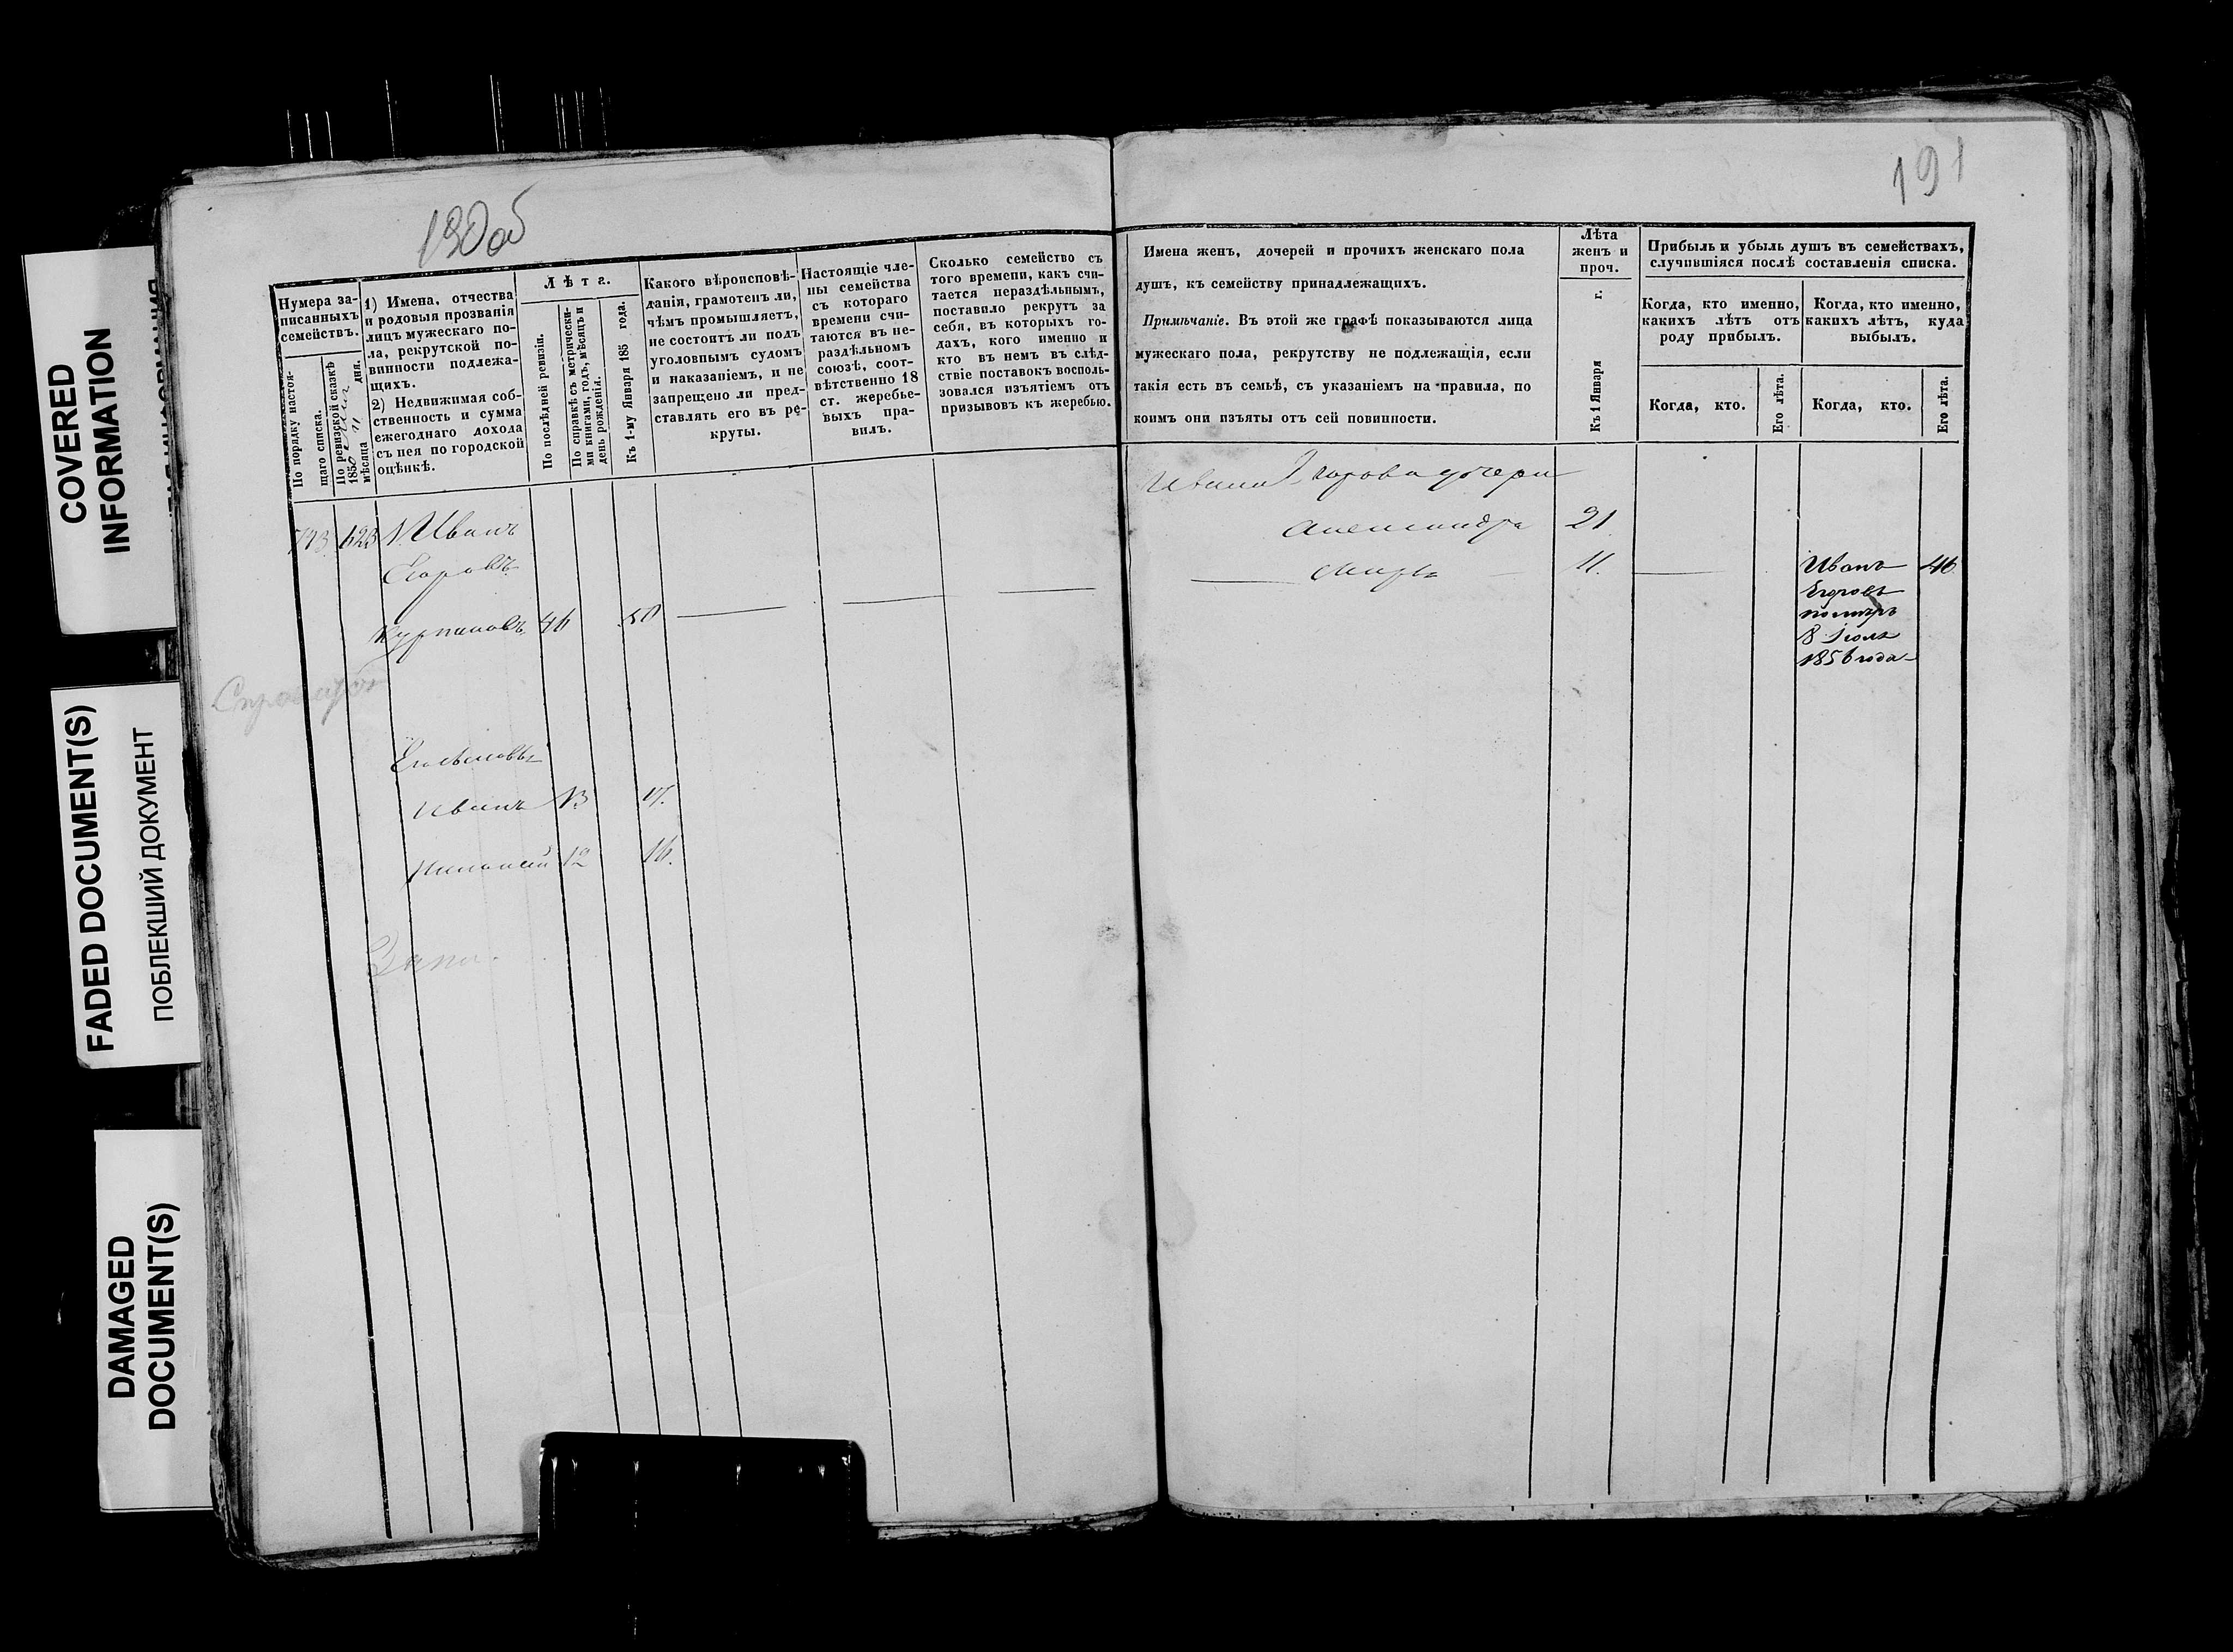 COVERED
INFORMATION
FADED DOCUMENT(S)
ПОБЛЕКШИЙ ДОКУМЕНТ
DAMAGED
DOCUMENT(S)
190об
Нумера за-
писанныхъ
семействъ.
По порядку настоя-
щаго списка.
По ревизской сказкѣ
1850
мѣсяца дня.
1) Имена, отчества
и родовыя прозванія
лицъ мужескаго по-
ла, рекрутской по-
винности подлежа-
щихъ.
2) Недвижимая соб-
ственность и сумма
ежегоднаго дохода
съ нея по городской
оцѣнкѣ.
Лѣта.
По послѣдней ревизіи.
По справкѣ съ метрически-
ми книгами, годъ, мѣсяцъ и
день рожденія.
Къ 1-му Января 185 года.
Какого вѣроисповѣ-
данія, грамотенъ ли,
чѣмъ промышляетъ,
не состоитъ ли подъ
уголовнымъ судомъ
и наказаніемъ, и не
запрещено ли пред-
ставлять его въ ре-
круты.
Настоящіе чле-
ны семейства
съ котораго
времени счи-
таются въ не-
раздѣльномъ
союзѣ, соот-
вѣтственно 18
ст. жеребье-
выхъ пра-
вилъ.
Сколько семейство съ
того времени, какъ счи-
тается нераздѣльнымъ,
поставило рекрутъ за
себя, въ которыхъ го-
дахъ, кого именно и
кто въ немъ въ слѣд-
ствіе поставокъ восполь-
зовался изъятіемъ отъ
призывовъ къ жеребью.
623 Иванъ
Егоровъ
46 50
Его сыновья
Иванъ 13 17.
Николай 12 16.
191
Имена женъ, дочерей и прочихъ женскаго пола
душъ, къ семейству принадлежащихъ.
Примѣчаніе. Въ этой же графѣ показываются лица
мужескаго пола, рекрутству не подлежащія, если
такія есть въ семьѣ, съ указаніемъ на правила, по
коимъ они изъяты отъ сей повинности.
Лѣта
женъ и
проч.
Къ 1 Января г.
Прибыль и убыль душъ въ семействахъ,
случившіяся послѣ составленія списка.
Когда, кто именно,
какихъ лѣтъ отъ
роду прибылъ.
Когда, кто именно,
какихъ лѣтъ, куда
выбылъ.
Когда, кто.
Его лѣта.
Когда, кто.
Его лѣта.
Ивана Егорова дочери
Александра 21
Марья 11.
Иванъ 46
Егоровъ
померъ
8 Іюля
1856 года